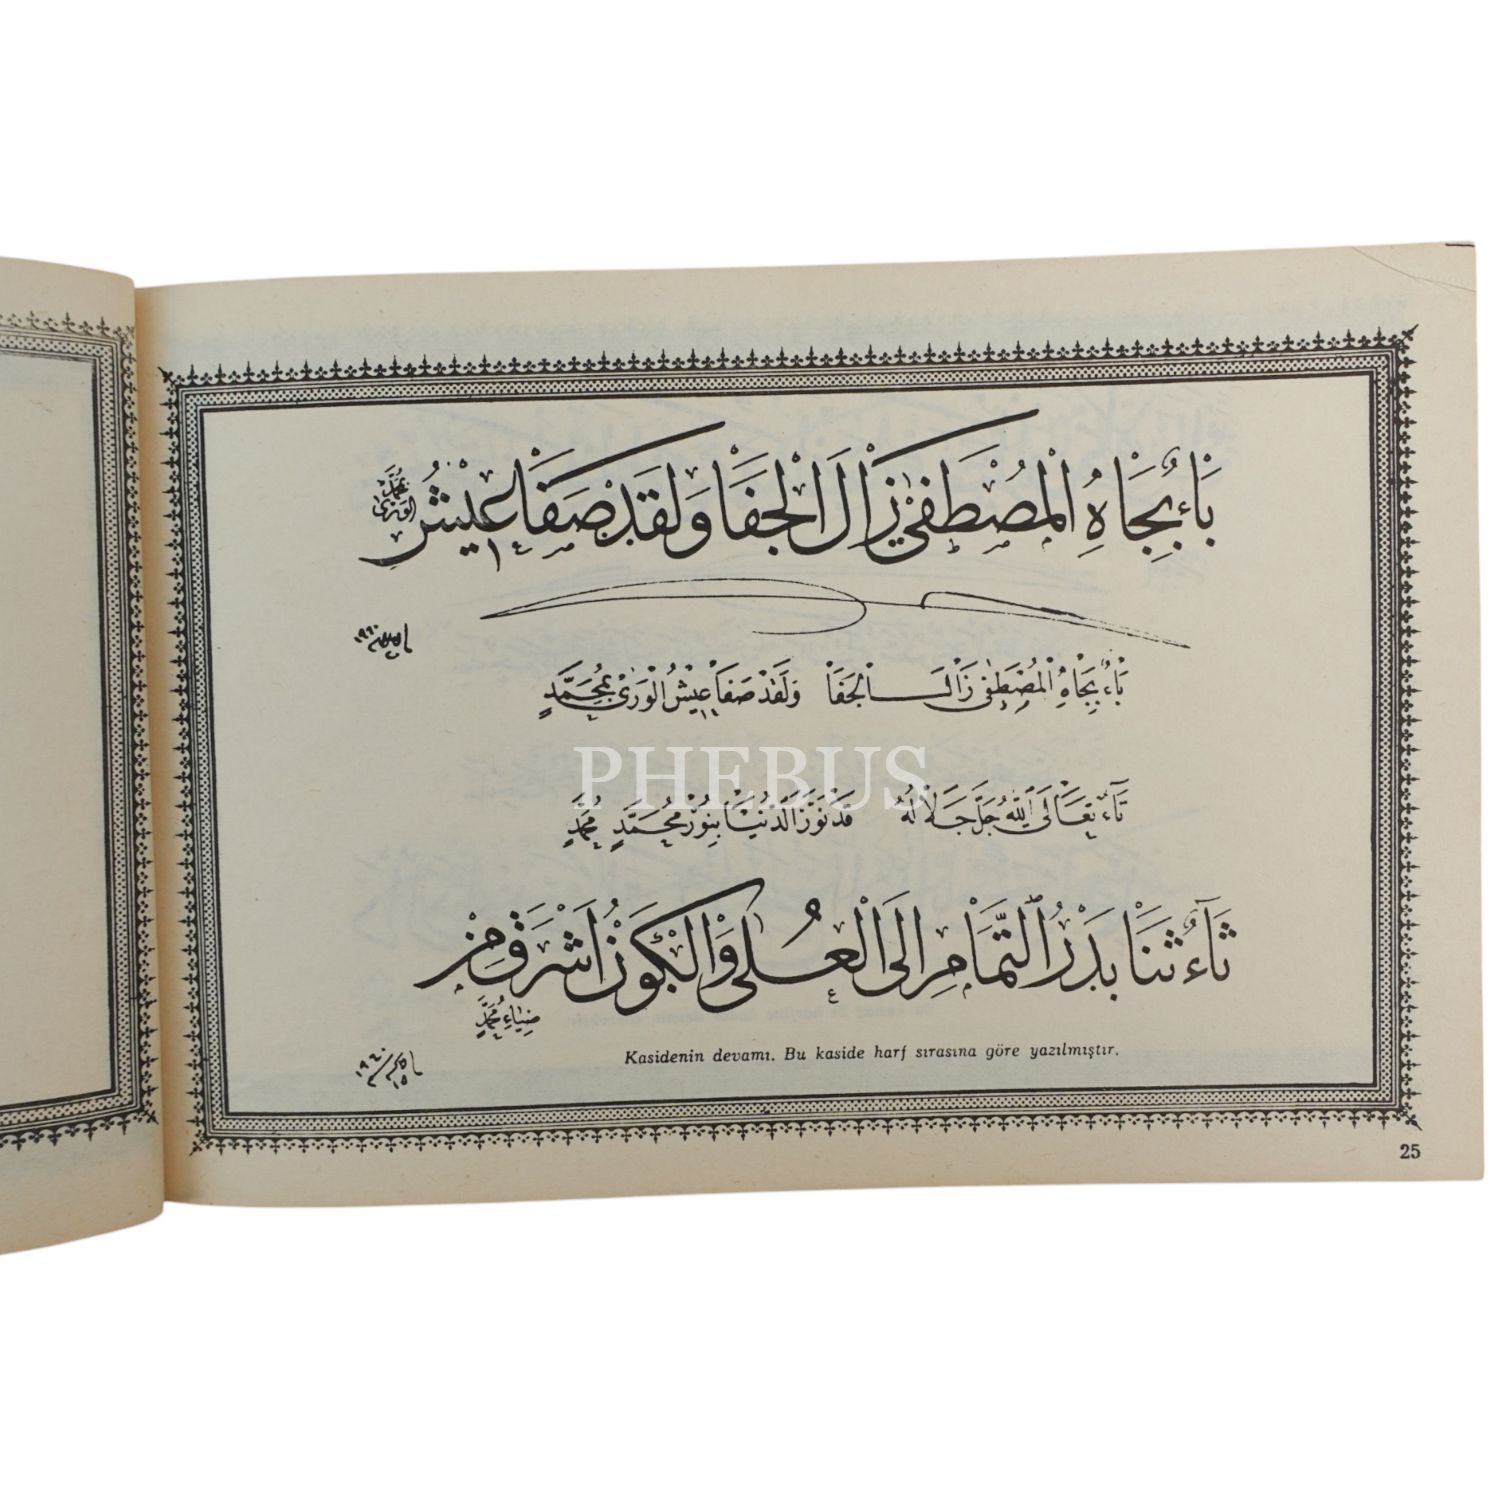 بَاءٌ بِجَاهِ الْمُصْطَفٰى زَالَ الْجَفَا وَلَقَدْ صَفَا عَيْشُ
الْوَرٰى بِمُحَمَّدٍ
بَاءٌ بِجَاهِ الْمُصْطَفٰى زَالَ الْجَفَا وَلَقَدْ صَفَا عَيْشُ الْوَرٰى بِمُحَمَّدٍ
PHEBUS
تَاءٌ تَعَالَى اللّٰهُ جَلَّ جَلَالُهُ قَدْ نَوَّرَ الدُّنْيَا بِنُورِ مُحَمَّدٍ مُحَمَّدٍ
ثَاءٌ ثَنَا بَدْرُ التَّمَامِ اِلَى الْعُلٰى وَالْكَوْنُ اَشْرَقَ مِنْ
ضِيَاءِ مُحَمَّدٍ
Kasidenin devamı. Bu kaside harf sırasına göre yazılmıştır.
25